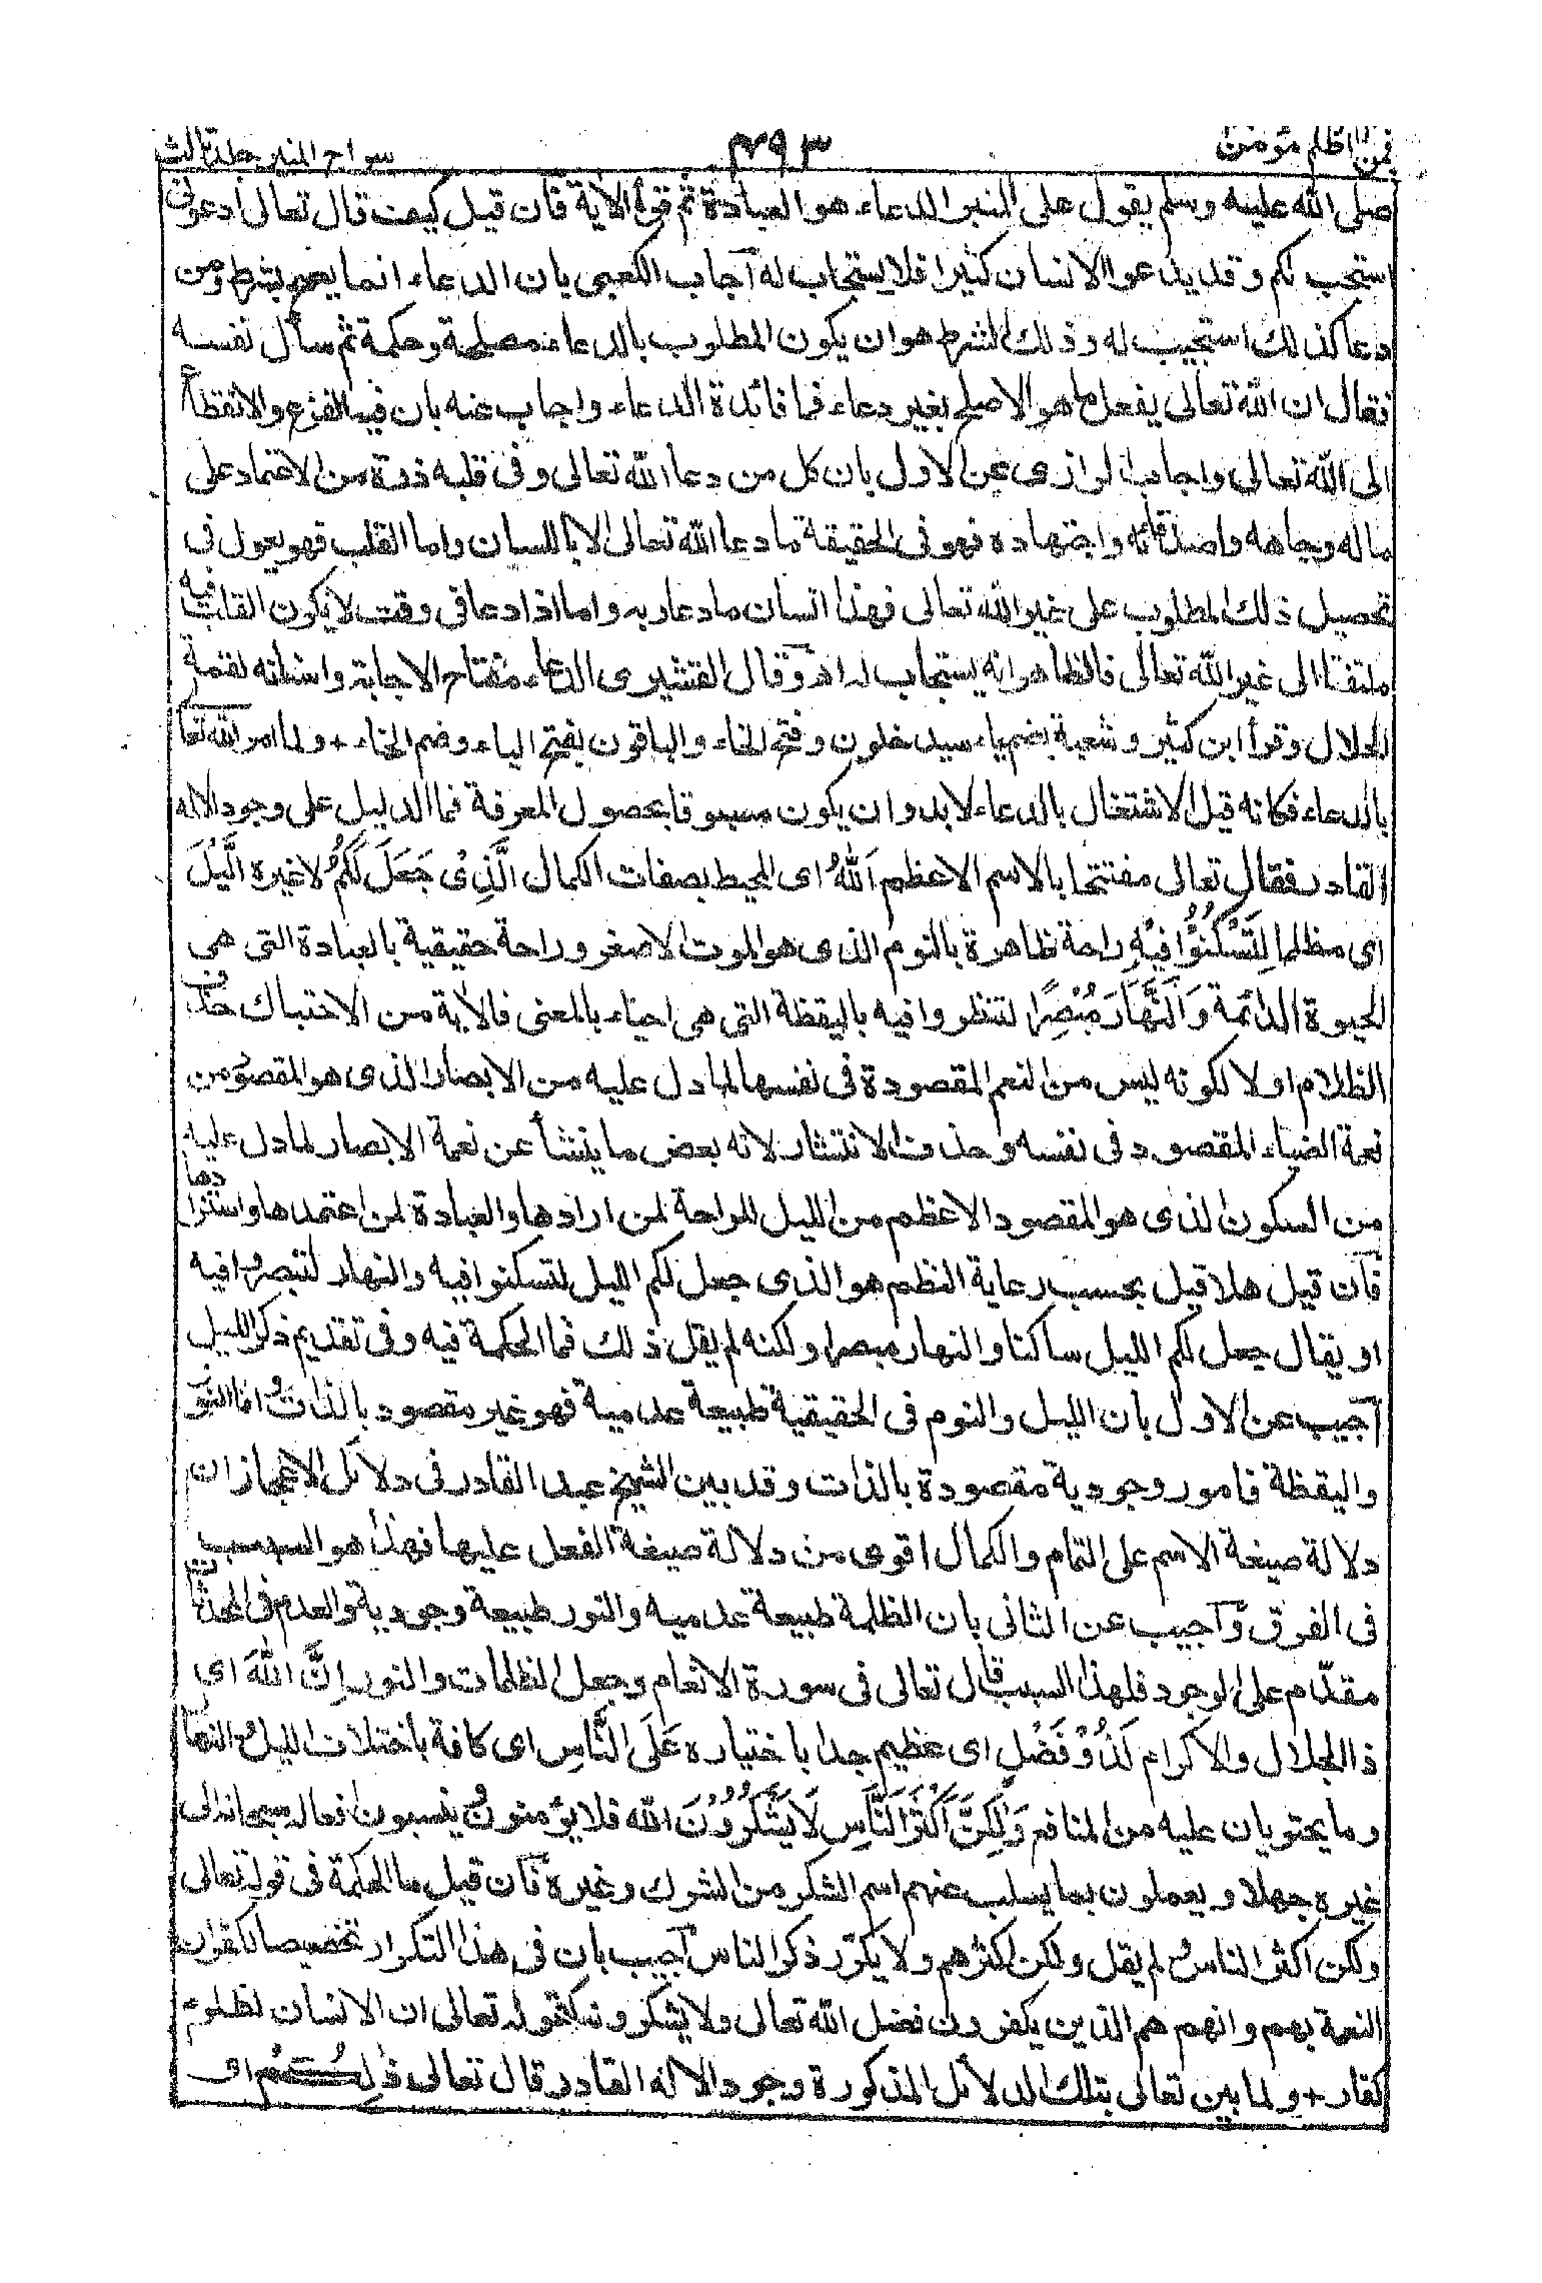 فمن اظلم مؤمن
٧٩٣
سراج المنير جلد ثالث
صلى الله عليه وسلم يقول على المنبر الدعاء هو العبادة ثم قرأ الآية فان قيل كيف قال تعالى ادعونى
استجب لكم وقد يدعو الانسان كثيرا فلا يستجاب له اجاب الكعبى بان الدعاء انما يصح بشرط ومن
دعا كذلك استجيب له وذلك الشرط هو ان يكون المطلوب بالدعاء مصلحة وحكمة ثم سأل نفسه
فقال ان الله تعالى يفعل ما هو الاصلح بغير دعاء فما فائدة الدعاء واجاب عنه بان فيه الفزع والانقطاع
الى الله تعالى واجاب الرازى عن الاول بان كل من دعا الله تعالى وفى قلبه ذرة من الاعتماد على
ماله وجاهه واصدقائه واجتهاده فهو فى الحقيقة ما دعا الله تعالى الا باللسان واما القلب فهو يعول فى
تحصيل ذلك المطلوب على غير الله تعالى فهذا انسان ما دعا ربه واما اذا دعا فى وقت لا يكون القلب فيه
ملتفتا الى غير الله تعالى فالظاهر انه يستجاب له اه وقال القشيرى الدعاء مفتاح الاجابة واسنانه لقمة
الحلال وقرأ ابن كثير وشعبة بضم ياء سيدخلون وفتح الخاء والباقون بفتح الياء وضم الخاء + ولما امر الله تعا
بالدعاء فكانه قيل الاشتغال بالدعاء لابد وان يكون مسبوقا بحصول المعرفة فما الدليل على وجود الاله
القادر فقال تعالى مفتتحا بالاسم الاعظم اَللهُ اى المحيط بصفات الكمال الَّذِىْ جَعَلَ لَكُمُ لا غيره الَّيْلَ
اى مظلما لِتَسْكُنُوْا فِيْهِ راحة ظاهرة بالنوم الذى هو الموت الاصغر وراحة حقيقية بالعبادة التى هى
الحيوة الدائمة وَالنَّهَارَ مُبْصِرًا لتنظروا فيه باليقظة التى هى احياء بالمعنى فالآية من الاحتباك حذف
الظلام اولا لكونه ليس من النعم المقصودة فى نفسها لما دل عليه من الابصار الذى هو المقصود من
نعمة الضياء المقصود فى نفسه وحذف الانتشار لانه بعض ما ينشأ عن نعمة الابصار لما دل عليه
من السكون الذى هو المقصود الاعظم من الليل للراحة لمن ارادها والعبادة لمن اعتمدها واستزادها
فان قيل هلا قيل بحسب رعاية النظم هو الذى جعل لكم الليل لتسكنوا فيه والنهار لتبصروا فيه
او يقال جعل لكم الليل ساكنا والنهار مبصرا ولكنه لم يقل ذلك فما الحكمة فيه وفى تقديم ذكر الليل
اجيب عن الاول بان الليل والنوم فى الحقيقية طبيعة عدمية فهو غير مقصود بالذات واما النور
واليقظة فامور وجودية مقصودة بالذات وقد بين الشيخ عبد القادر فى دلائل الاعجاز ان
دلالة صيغة الاسم على التمام والكمال اقوى من دلالة صيغة الفعل عليها فهذا هو السبب
فى الفرق واجيب عن الثانى بان الظلمة طبيعة عدمية والنور طبيعة وجودية والعدم فى المحدثات
مقدّم على الوجود فلهذا السبب قال تعالى فى سورة الانعام وجعل الظلمات والنور اِنَّ اللهَ اى
ذا الجلال والاكرام لَذُوْ فَضْلٍ اى عظيم جدا باختياره عَلَى النَّاسِ اى كافة باختلاف الليل والنها
وما يحتويان عليه من المنافع وَلٰكِنَّ اَكْثَرَ النَّاسِ لَا يَشْكُرُوْنَ الله فلا يؤمنون وينسبون افعاله سبحانه الى
غيره جهلا ويعملون بما يسلب عنهم اسم الشكر من الشرك وغيره فان قيل ما الحكمة فى قوله تعالى
ولكن اكثر الناس ولم يقل ولكن اكثرهم ولا يكرّر ذكر الناس اجيب بان فى هذا التكرار تخصيصا لكفران
النعمة بهم وانهم هم الذين يكفرون فضل الله تعالى ولا يشكرونه كقوله تعالى ان الانسان لظلوم
كفار + ولما بين تعالى بتلك الدلائل المذكورة وجود الاله القادر قال تعالى ذٰلِكُمُ اى